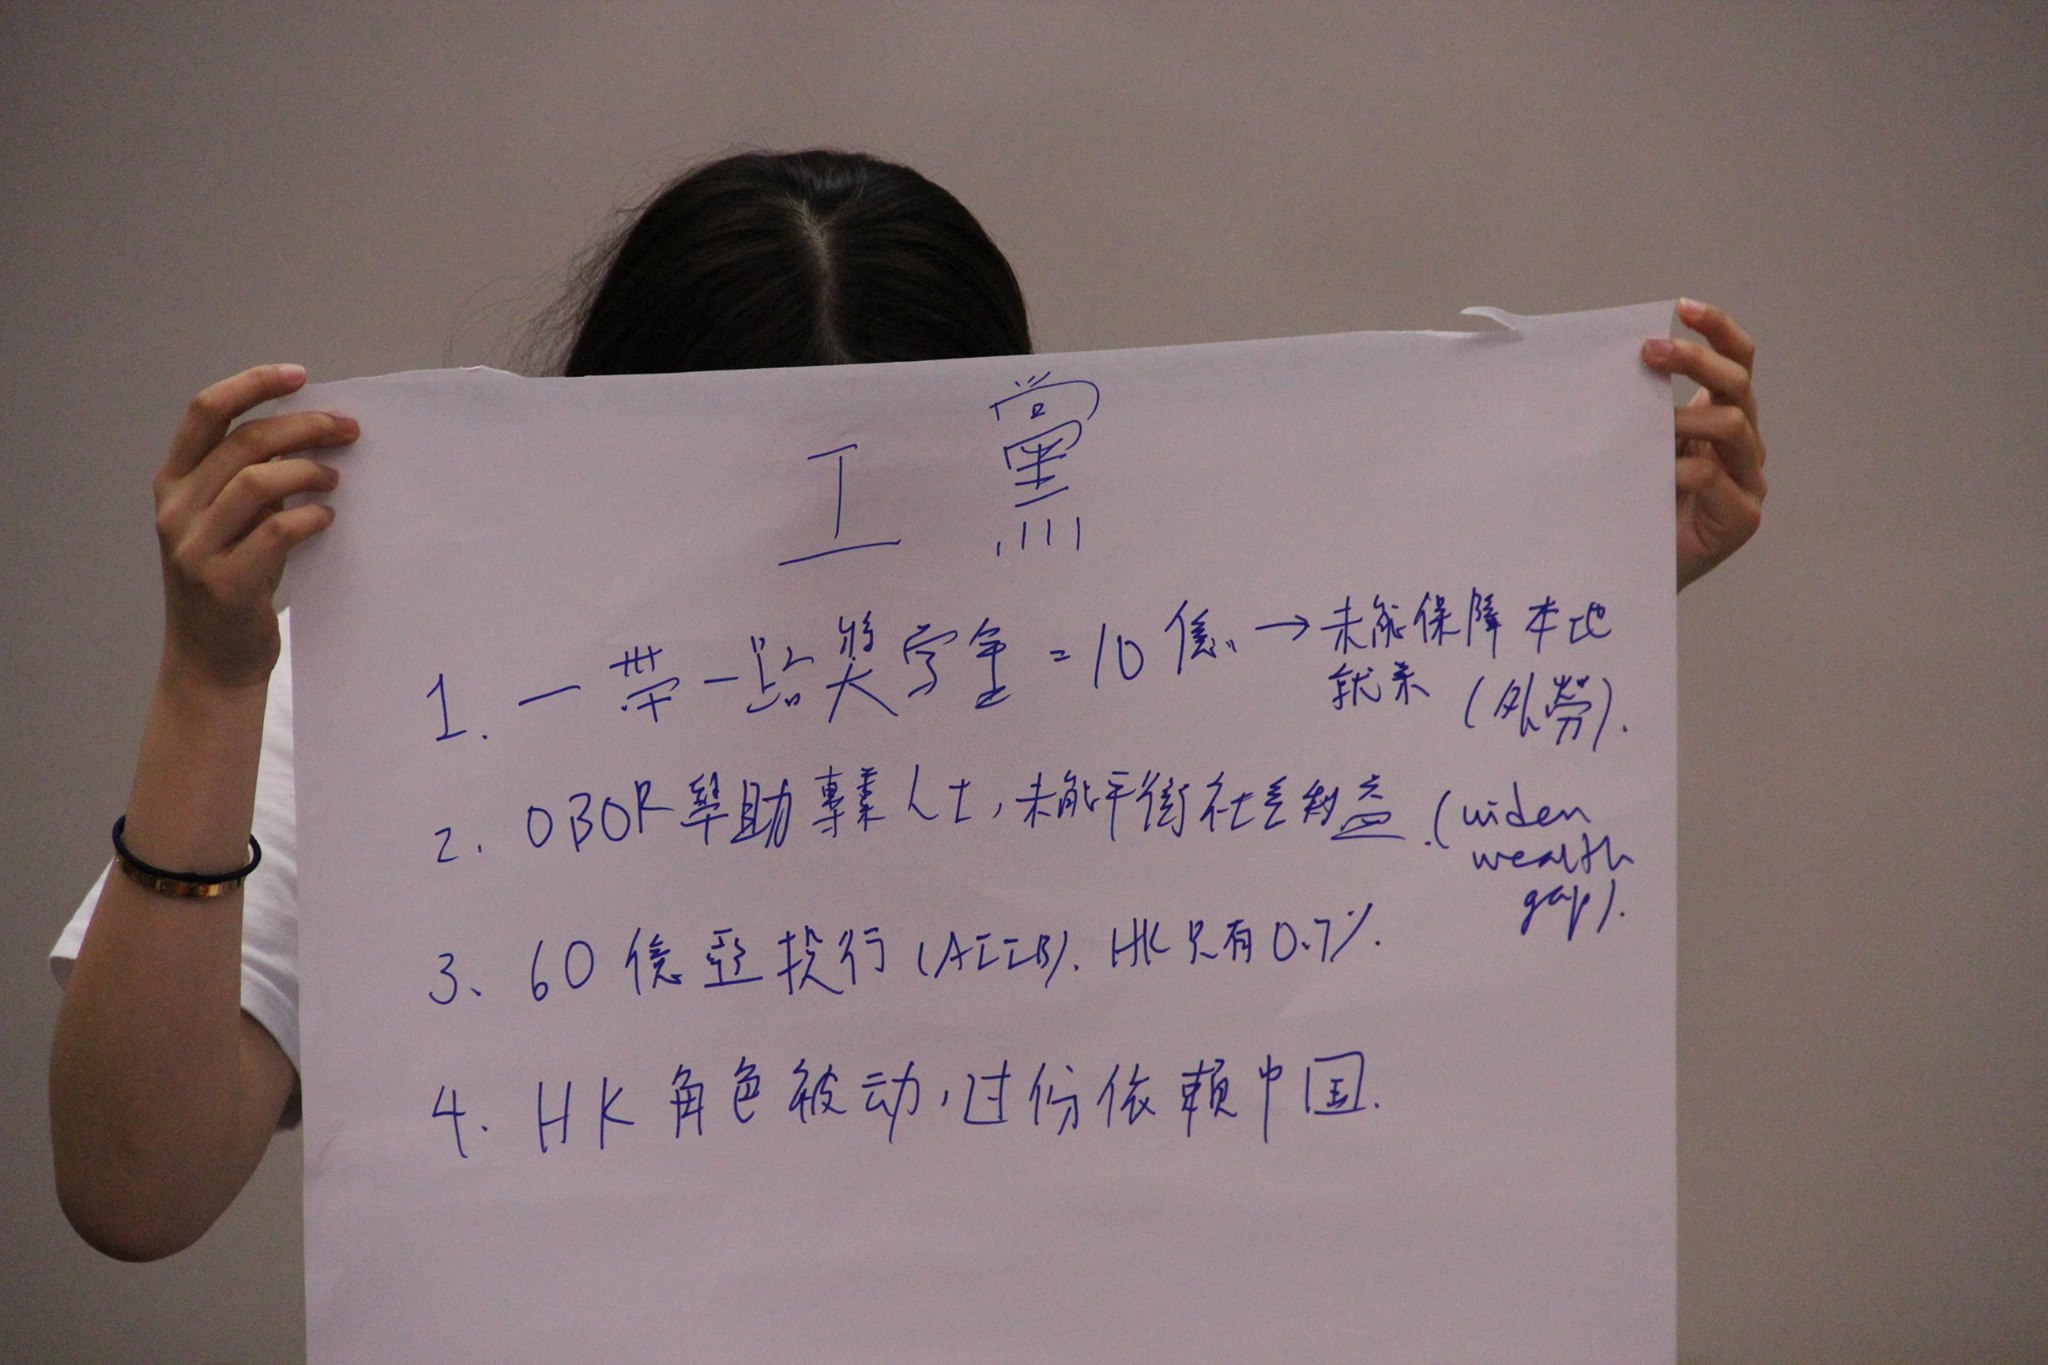 工黨
1. 一帶一路奖学金 = 10 億 → 未能保障本地
就業 (外勞).
2. OBOR 單助專業人士, 未能平衡社会利益. (widen
wealth
gap).
3、60 億亞投行 (AIIB). HK 只有 0.7%.
4. HK 角色被动, 过份依賴中国.